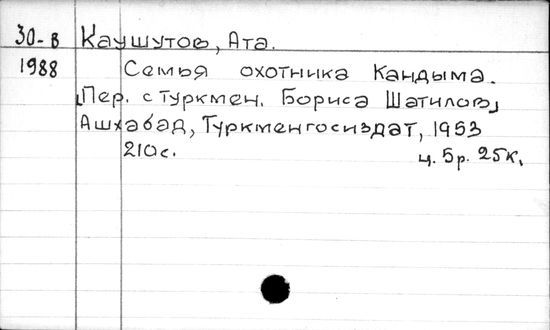 30-в Каушутов, Ата.
1988 Семья охотника Кандыма.
[Пер. с туркмен. Бориса Шатилова]
Ашхабад, Туркменгосиздат, 1953
210с. ц. 5р. 25к.